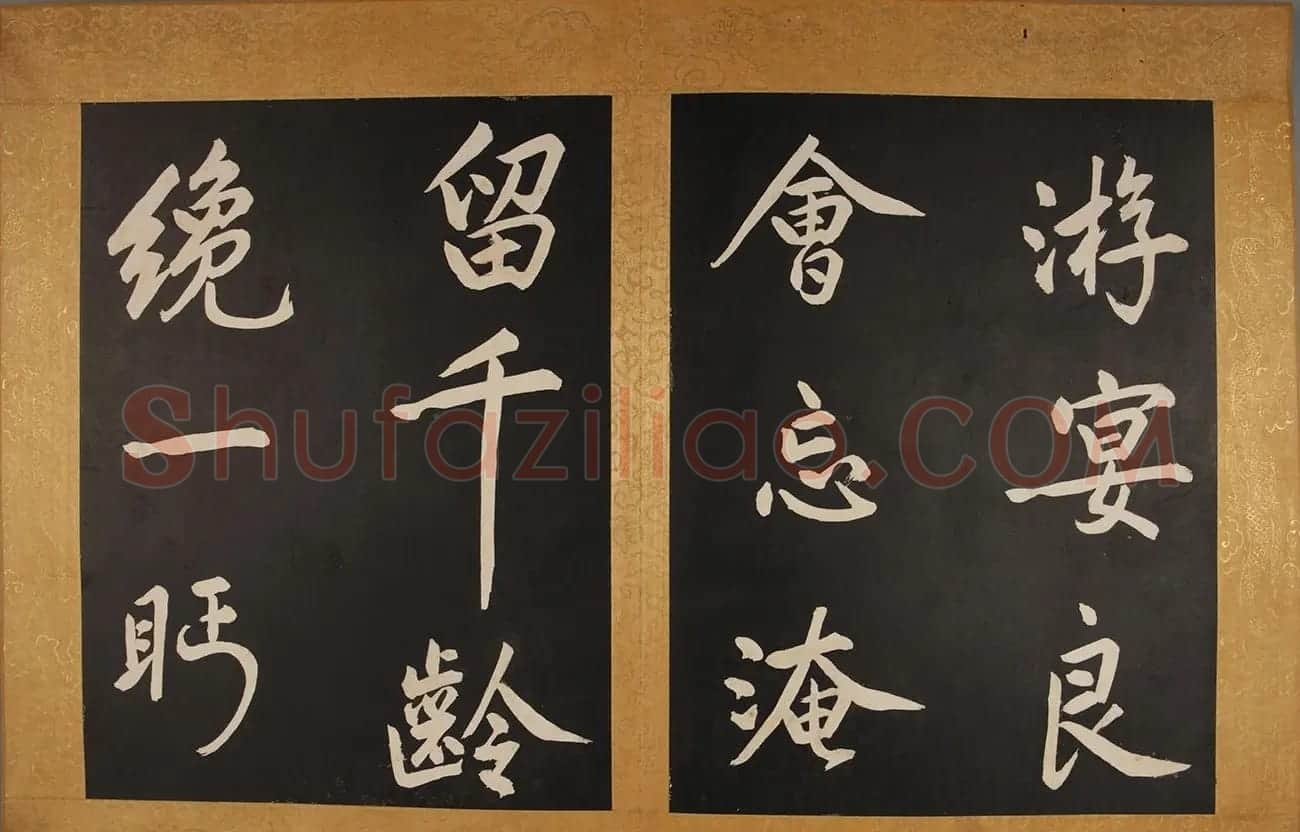 游宴良
會忘淹
留千齡
纔一眄
Shufaziliao.COM